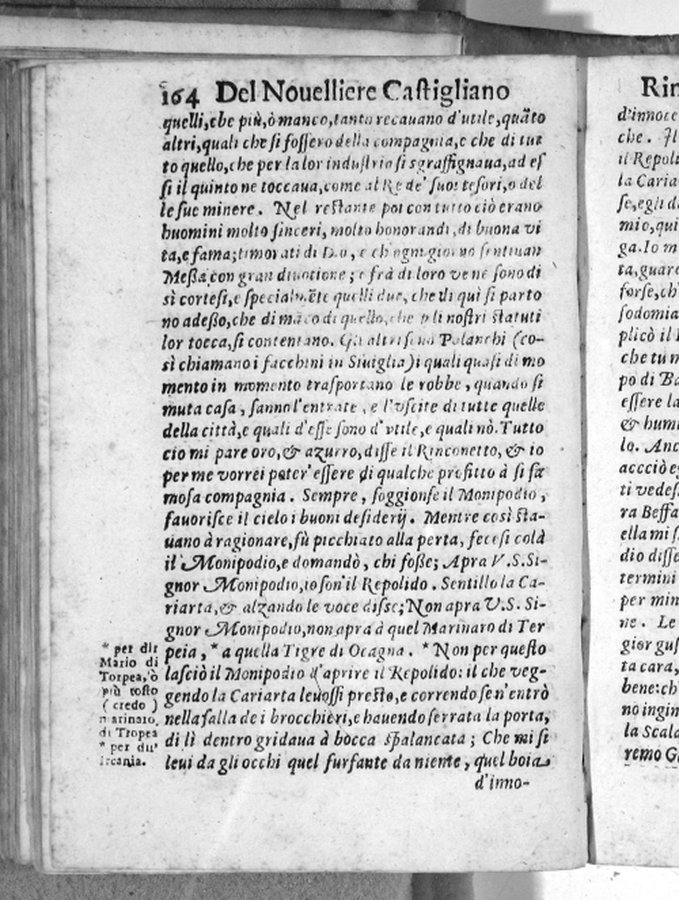 164 Del Nouelliere Castigliano
quelli, che più, ò manco, tanto recauano d'utile, quãto
altri, quali che si fossero della compagnia, e che di tut
to quello, che per la lor industria si sgraffignaua, ad es
si il quinto ne toccaua, come al Re de' suoi tesori, o del
le sue minere. Nel restante poi con tutto ciò erano
huomini molto sinceri, molto honorandi, di buona vi
ta, e fama; timorati di Dio, e ch'ogni giorno sentiuan
Messa con gran diuotione; e frà di loro ve ne sono di
sì cortesi, e specialmẽte quelli due, che di quì si parto
no adesso, che di mãco di quello, che p li nostri statuti
lor tocca, si contentano. Gli altri sono Palanchi (co-
sì chiamano i facchini in Siuiglia) i quali quasi di mo
mento in momento trasportano le robbe, quando si
muta casa, sanno l'entrate, e l'vscite di tutte quelle
della città, e quali d'esse sono d'vtile, e quali nò. Tutto
cio mi pare oro, & azurro, disse il Rinconetto, & io
per me vorrei poter' essere di qualche profitto à sì fa
mosa compagnia. Sempre, soggionse il Monipodio,
fauorisce il cielo i buoni desiderij. Mentre così sta-
uano à ragionare, fù picchiato alla porta, fecesi colà
il Monipodio, e domandò, chi fosse; Apra V.S. Si-
gnor Monipodio, io son' il Repolido. Sentillo la Ca-
riarta, & alzando le voce disse; Non apra V.S. Si-
gnor Monipodio, non apra à quel Marinaro di Ter
peia, * a quella Tigre di Ocagna. * Non per questo
lasciò il Monipodio d'aprire il Repolido: il che veg-
gendo la Cariarta leuossi presto, e correndo se n'entrò
nella salla de i brocchieri, e hauendo serrata la porta,
di lì dentro gridaua à bocca spalancata; Che mi si
leui da gli occhi quel furfante da niente, quel boia
d'inno-
* per dir
Mario di
Torpea, ò
più tosto
( credo )
marinaro
di Tropea
* per du'
Ircania.
Rin
d'innoce
che. Il
il Repoli
la Cariar
se, egli d
mio, qui
ga. Io m
ta, guard
forse, ch'
sodomia
plicò il
che tu m
po di Ba
essere la
& hum
lo. Anc
acciò e
ti vedes
ra Beffa
ella mi s
dio disse
termini
per min
ne. Le
gior gus
ta cara,
bene: ch'
no ingin
la Scala
remo G